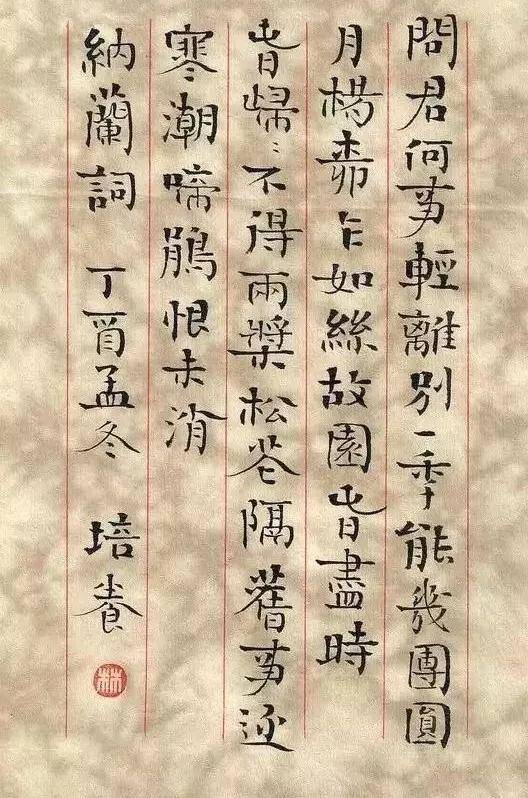 問君何事輕離別一年能幾團圓
月楊柳乍如絲故園春盡時
春歸〻不得兩槳松花隔舊事逐
寒潮啼鵑恨未消
納蘭詞 丁酉孟冬 培養
林